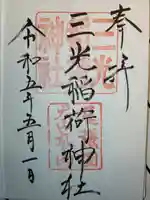 奉拝
三光稲荷神社
令和五年五月一日
三光
神社